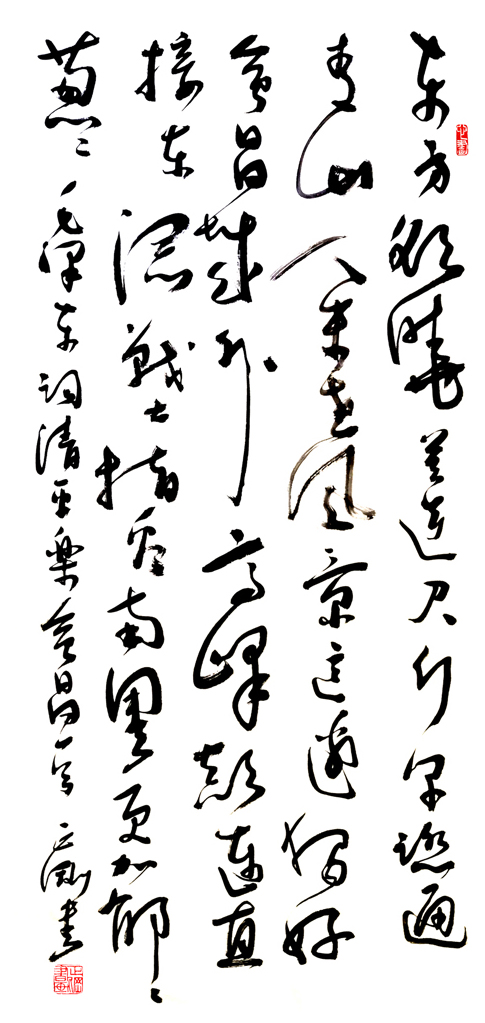 东方欲晓莫道君行早踏遍
青山人未老风景这边独好
会昌城外高峰颠连直
接东溟战士指看南粤更加郁々
葱々毛泽东词清平乐会昌一首 刚书